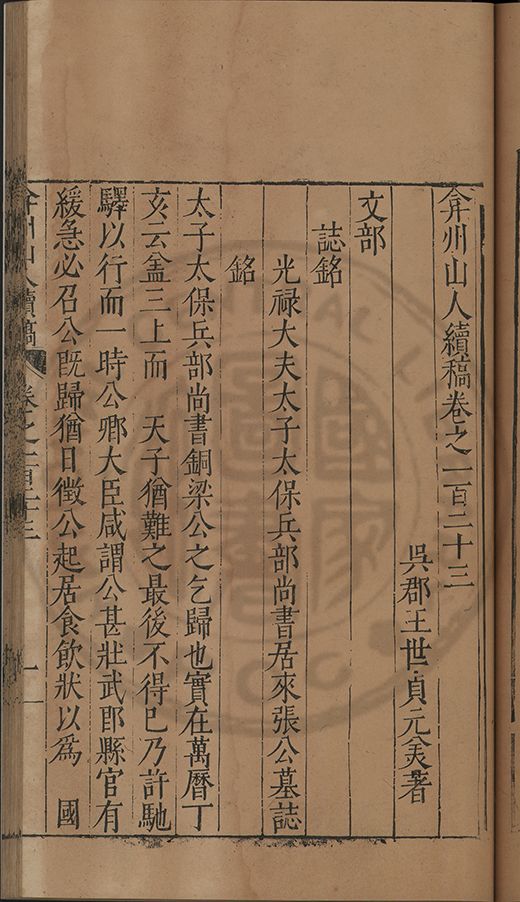 弇州山人續稿卷之一百二十三
吳郡王世貞元美著
文部
誌銘
光禄大夫太子太保兵部尚書居來張公墓誌
銘
太子太保兵部尚書銅梁公之乞歸也實在萬曆丁
亥云葢三上而　天子猶難之最後不得已乃許馳
驛以行而一時公卿大臣咸謂公甚壯武郎縣官有
緩急必召公旣歸猶日徵公起居食飲狀以爲　國
弇州山人續稿 卷之一百二十三 一